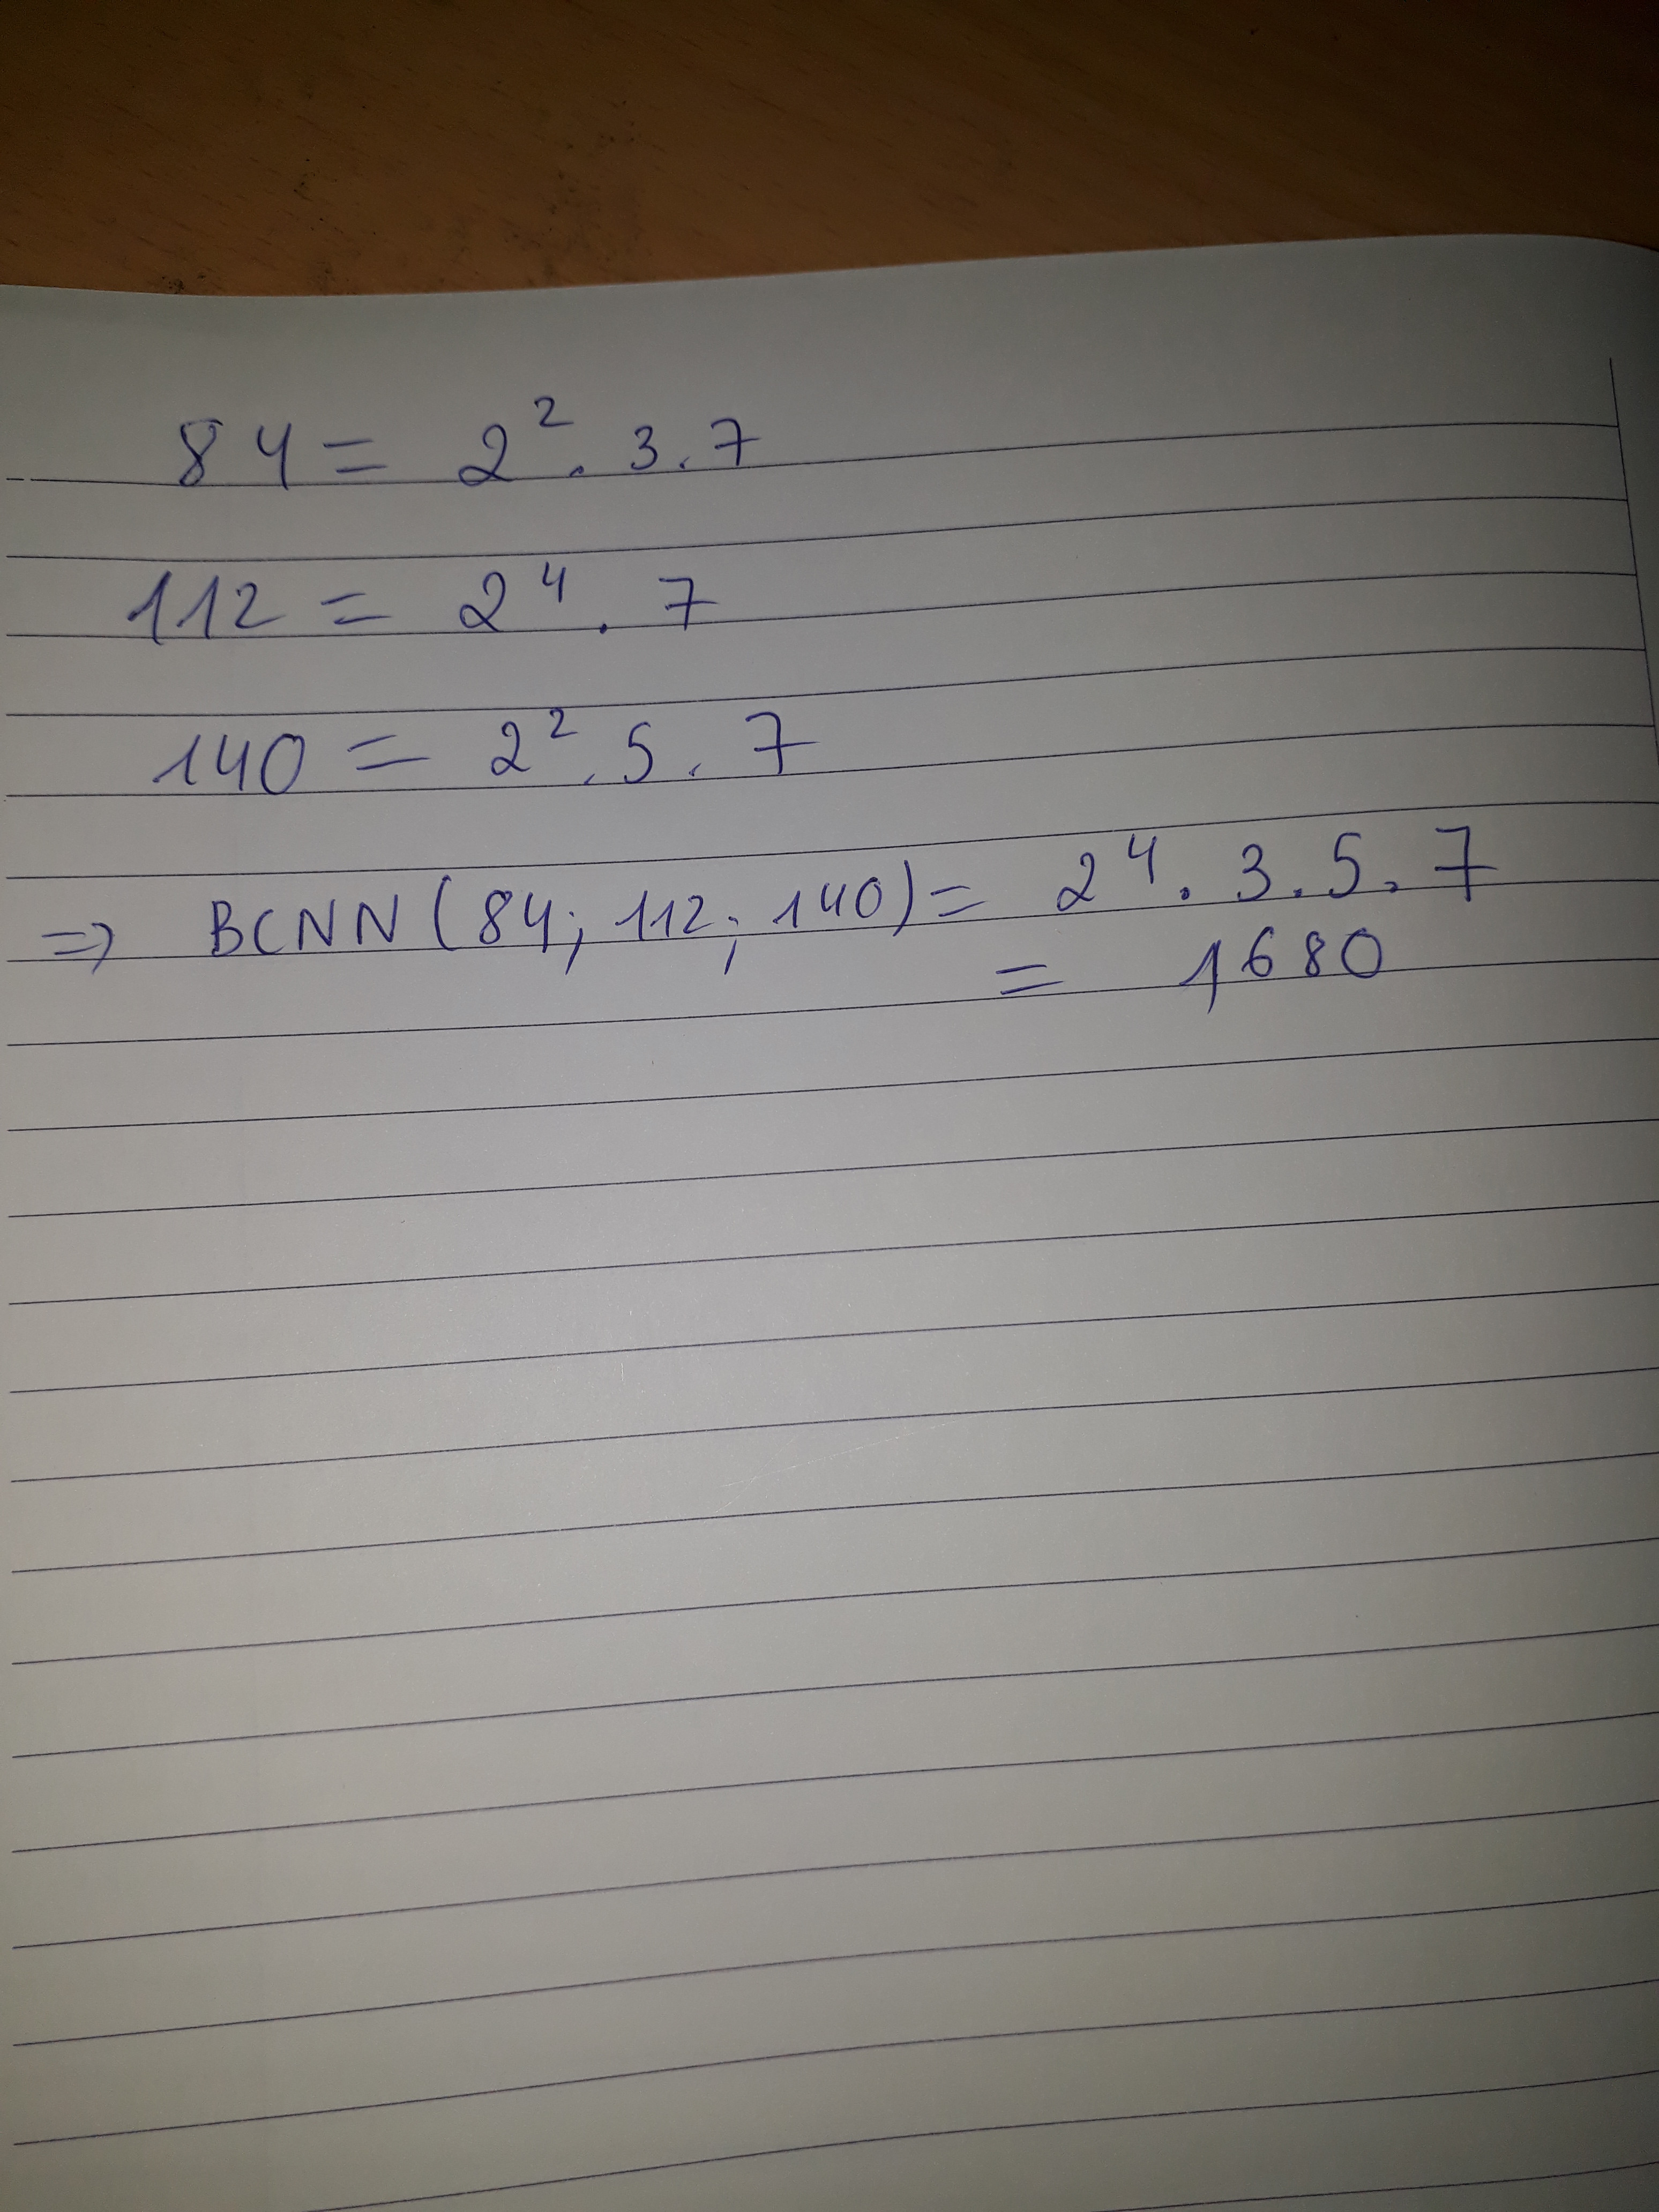 84 = 2² . 3 . 7
112 = 2⁴ . 7
140 = 2² . 5 . 7
=> BCNN (84; 112; 140) = 2⁴ . 3 . 5 . 7
= 1680